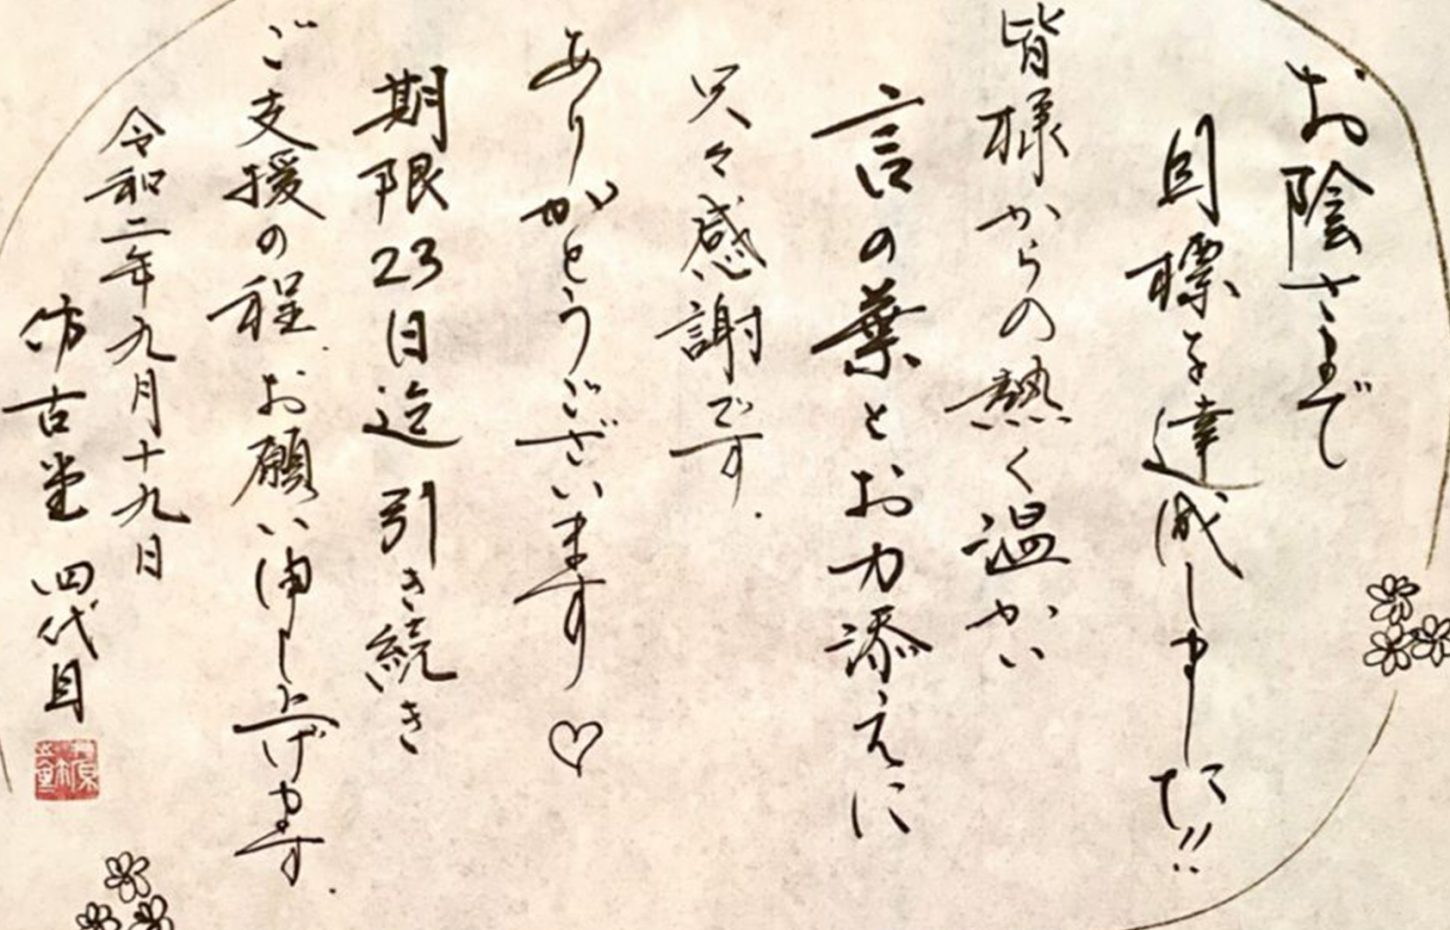 お陰さまで
目標を達成しました!!
皆様からの熱く温かい
言の葉とお力添えに
只々感謝です.
ありがとうございます♡
期限23日迄 引き続き
ご支援の程.お願い申し上げます.
令和二年九月十九日
仿古堂 四代目